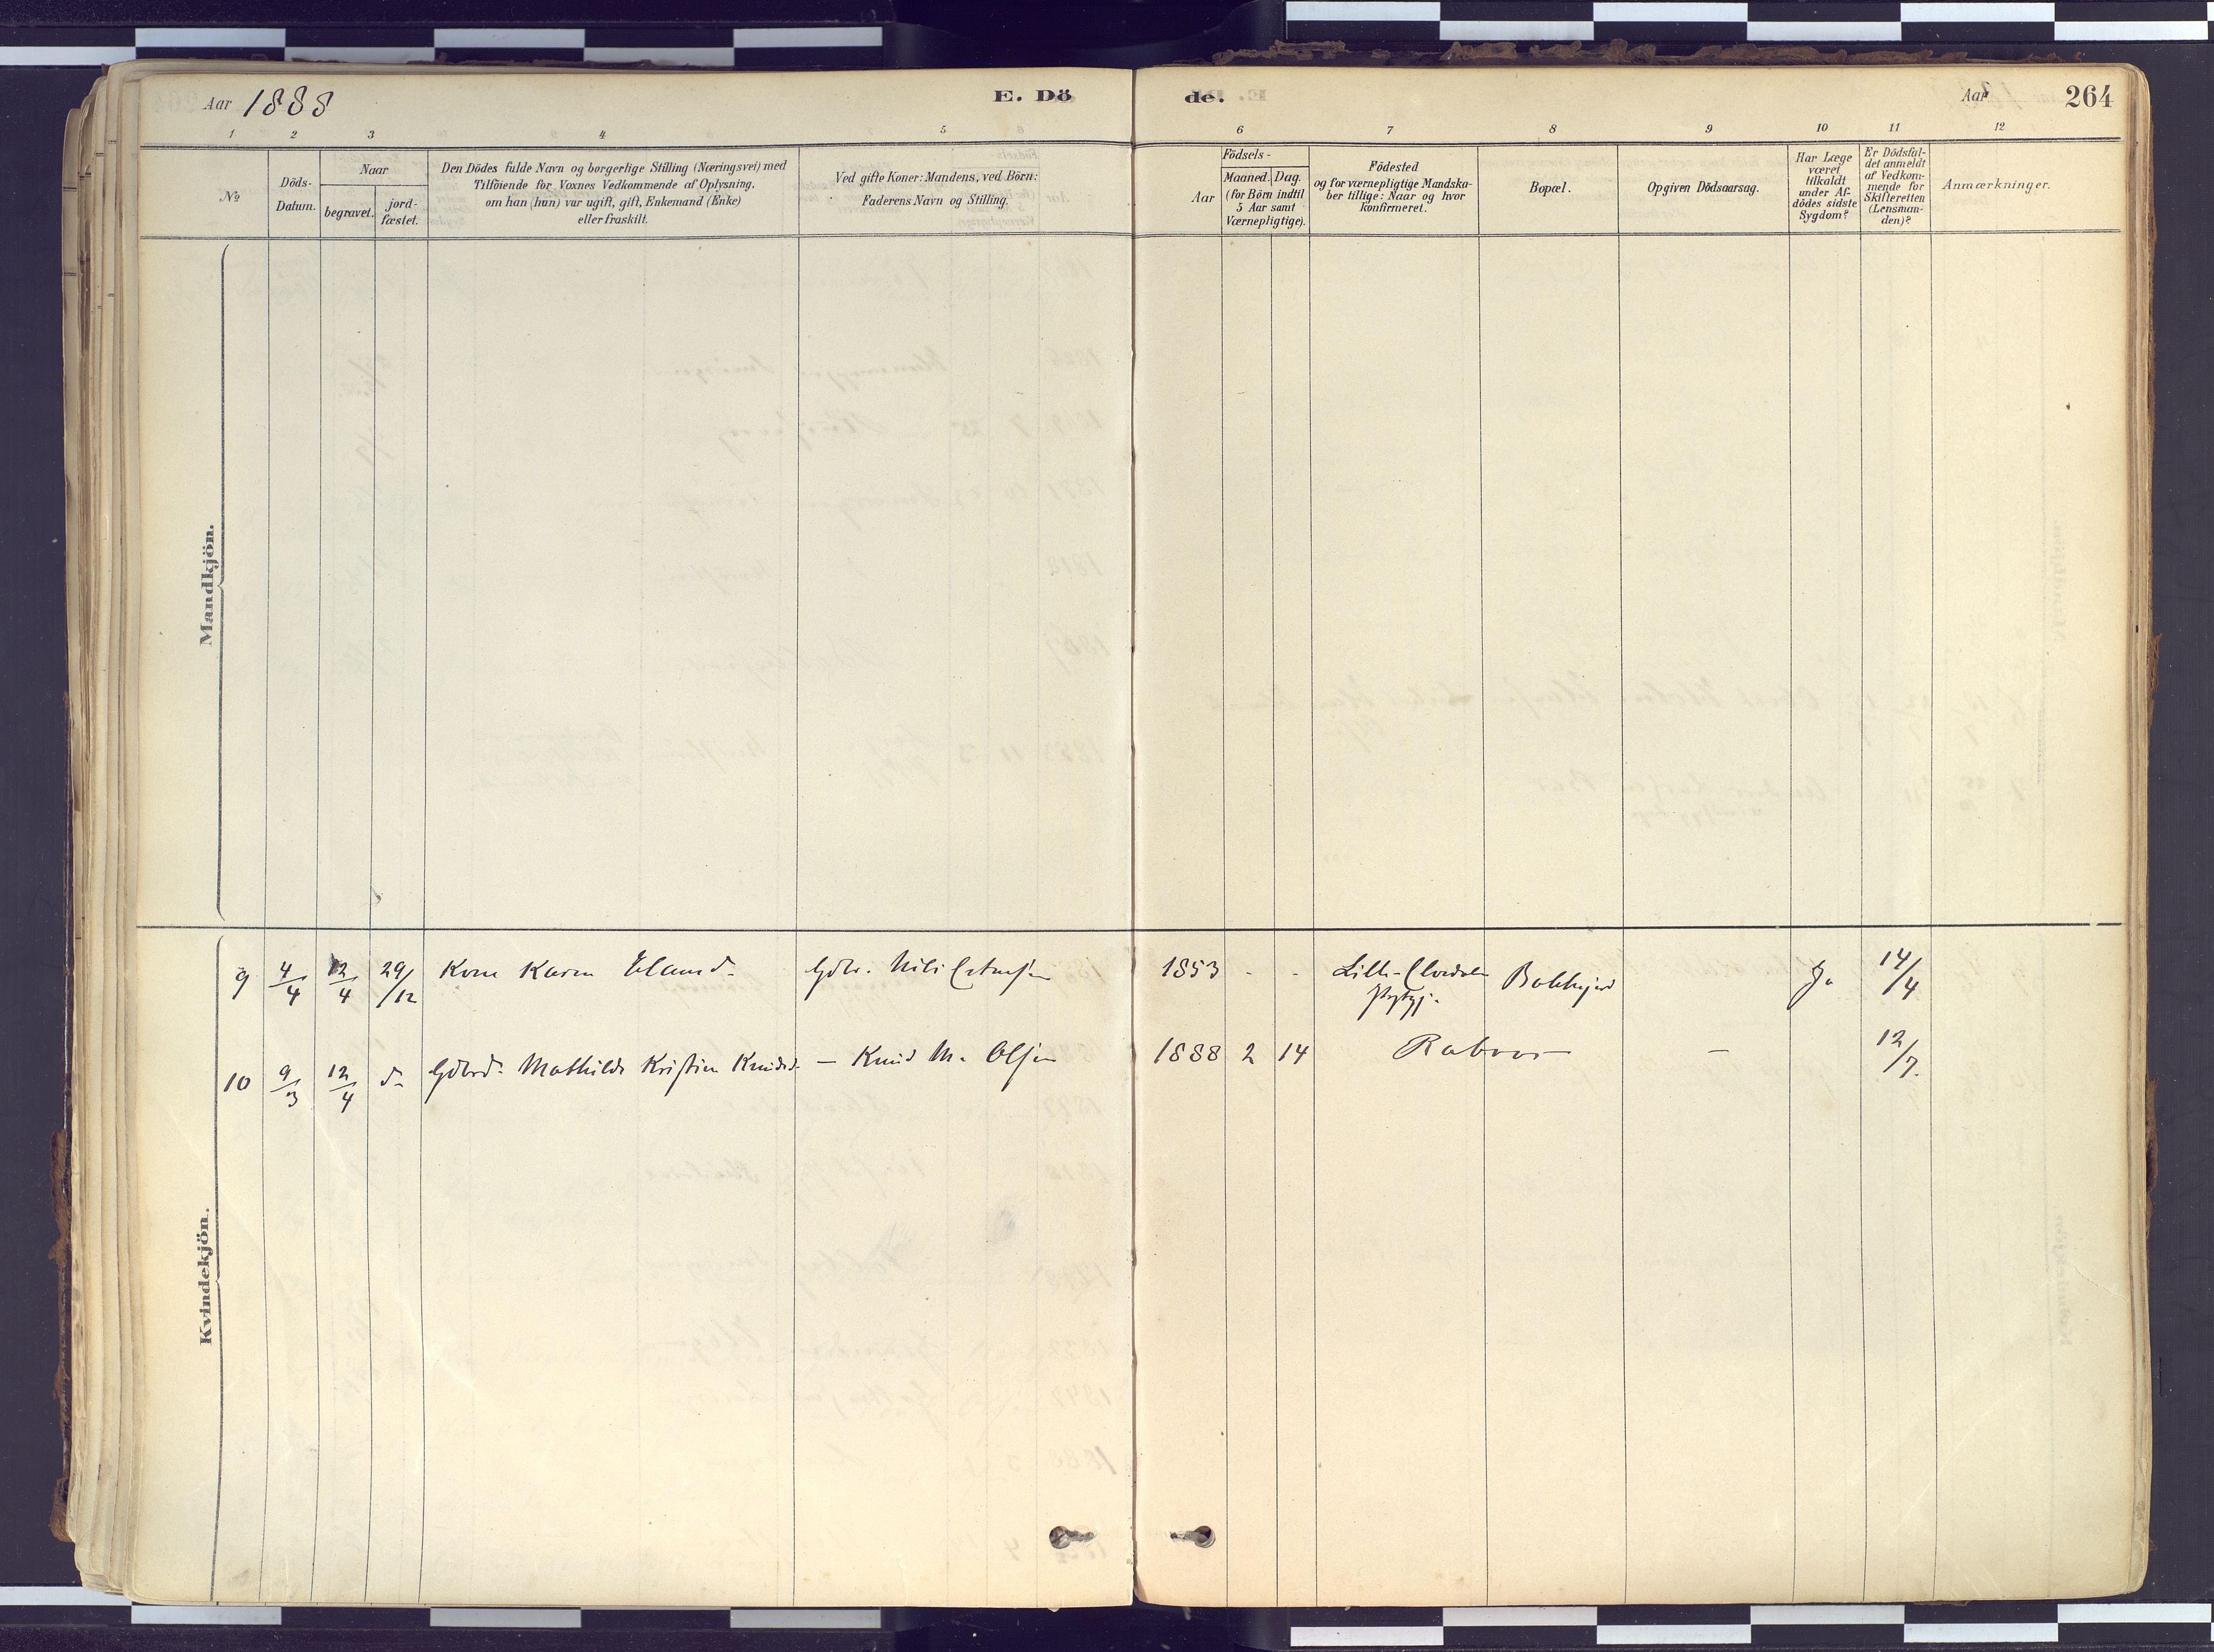 Aar 1888
E. Dö
de.
Aar
264
1 2 3 4 5 6 7 8 9 10 11 12
No
Döds-
Datum.
Naar
begravet.
jord-
fæstet.
Den Dödes fulde Navn og borgerlige Stilling (Næringsvei) med
Tilföiende for Voxnes Vedkommende af Oplysning,
om han (hun) var ugift, gift, Enkemand (Enke)
eller fraskilt.
Ved gifte Koner: Mandens, ved Börn:
Faderens Navn og Stilling.
Aar
Födsels-
Maaned. Dag.
(for Börn indtil
5 Aar samt
Værnepligtige).
Födested
og for værnepligtige Mandska-
ber tillige: Naar og hvor
konfirmeret.
Bopæl.
Opgiven Dödsaarsag.
Har Læge
været
tilkaldt
under Af-
dödes sidste
Sygdom?
Er Dödsfal-
det anmeldt
af Vedkom-
mende for
Skifteretten
(Lensman-
den)?
Anmærkninger.
Mandkjön.
Kvindekjön.
9 4/4 12/4 29/12 Kone Karen Eland. Gdbr. Nils 1853 - - Lille- Ja 14/4
10 9/3 12/4 do Gdbrd. Mathilde Kristine Knudsd. — Knud M. Olsen 1888 2 14 — 12/7.